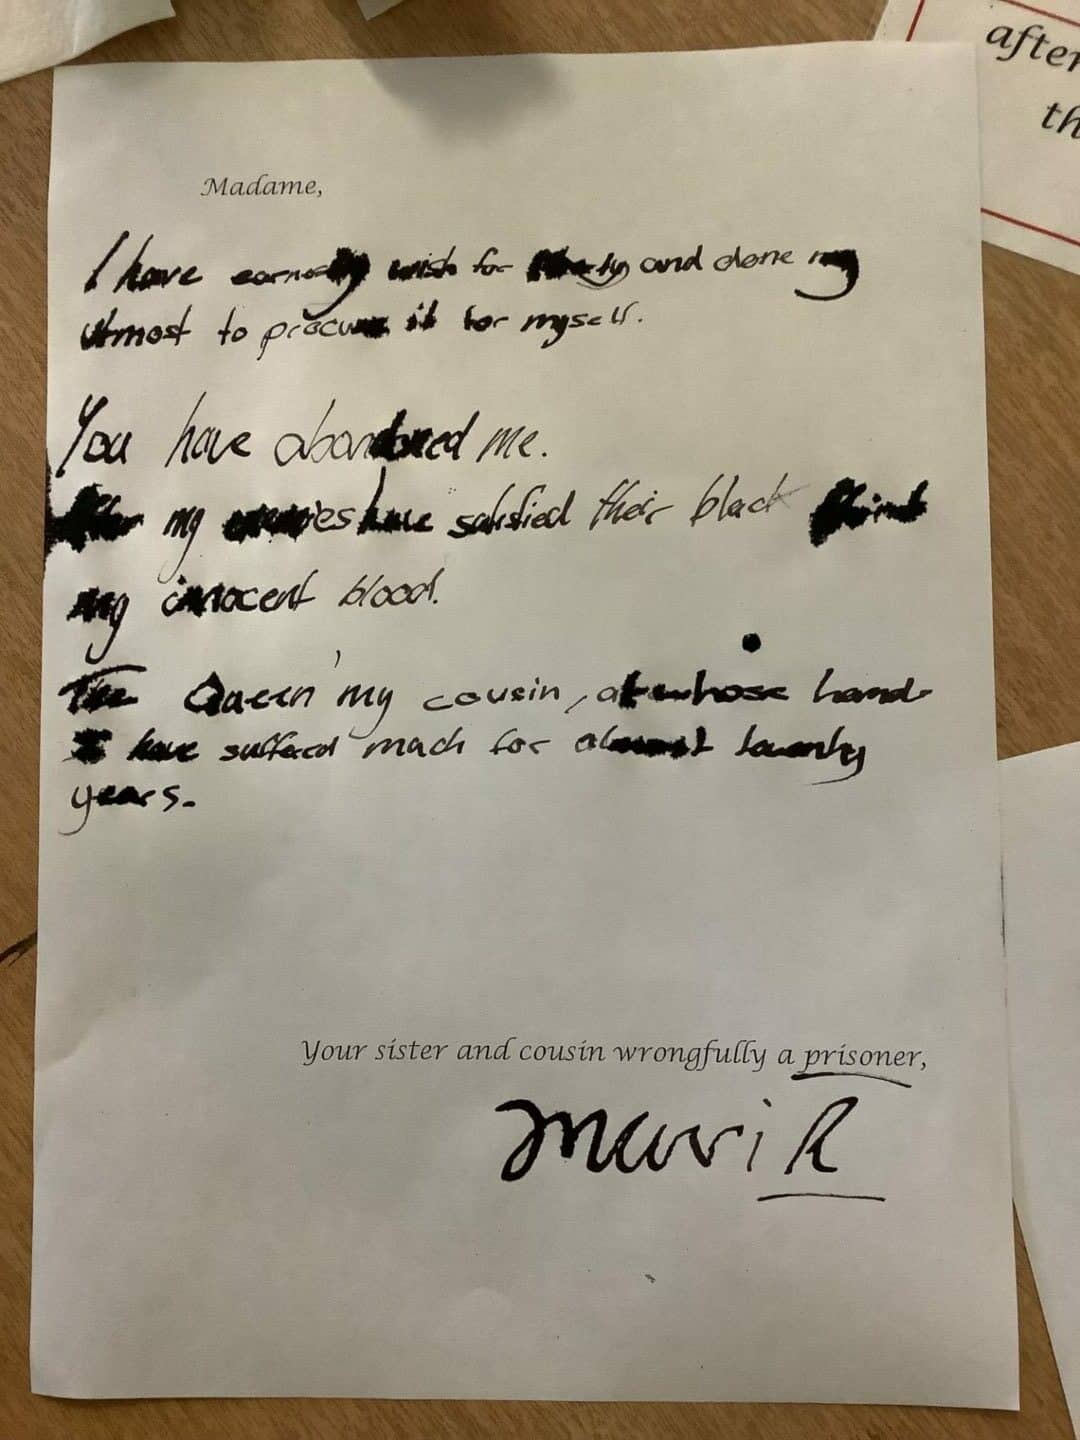 after
th
Madame,
I have earnestly wish for liberty and done my
utmost to procure it for myself.
You have abandoned me.
my enemies have satisfied their black
my innocent blood.
The Queen my cousin, at whose hand
I have sufferd much for almost twenty
years.
Your sister and cousin wrongfully a prisoner,
Mari R